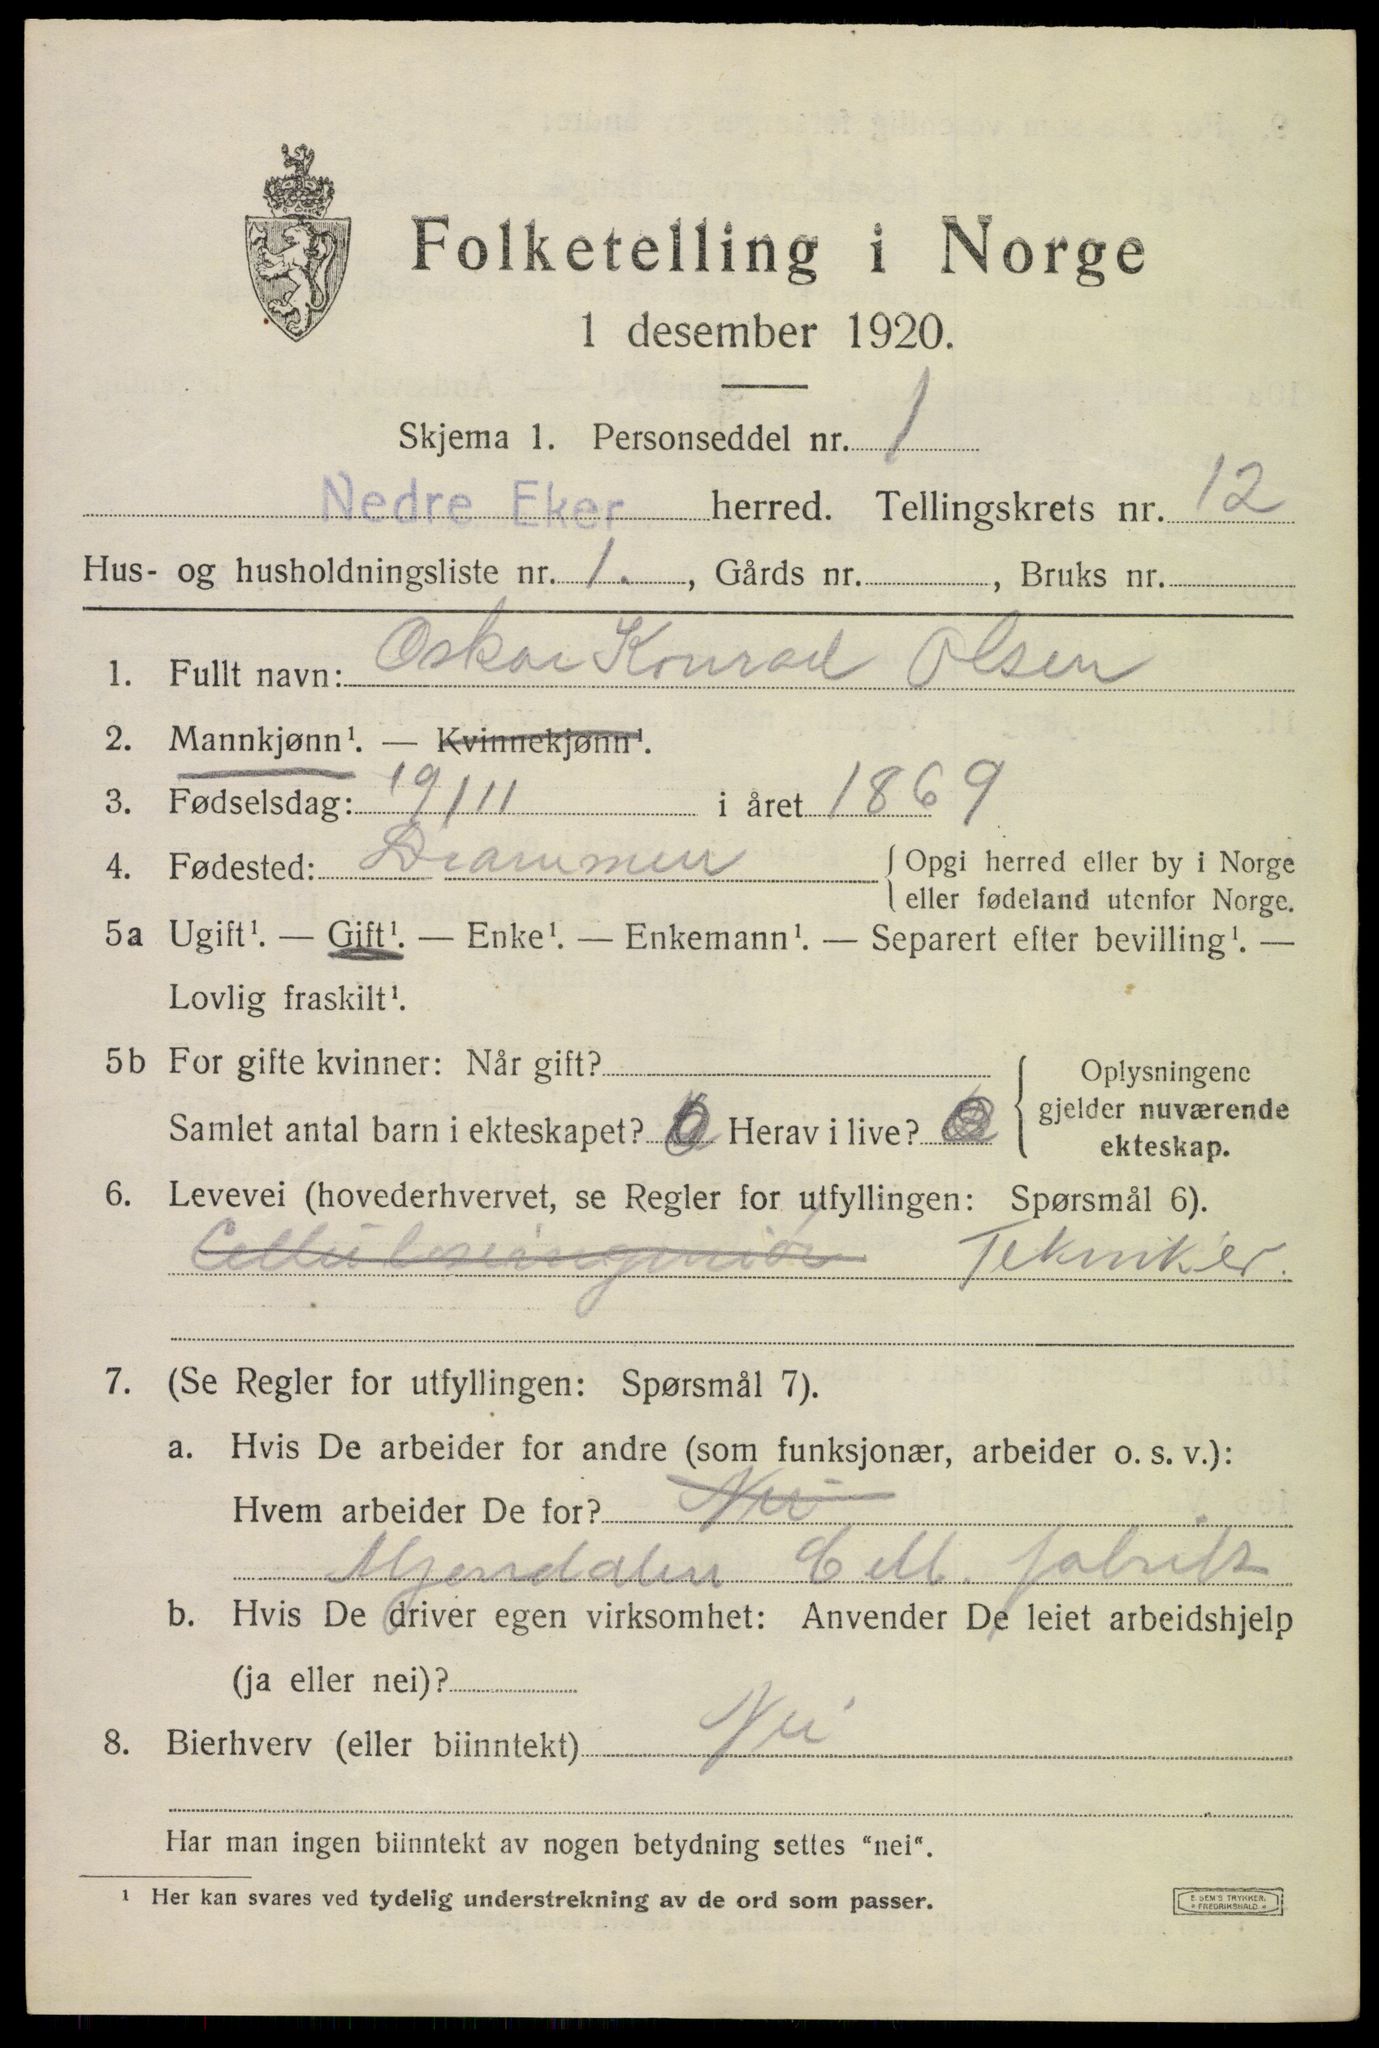 Folketelling i Norge
1 desember 1920.
Skjema 1. Personseddel nr. 1
Nedre Eker herred. Tellingskrets nr. 12
Hus- og husholdningsliste nr. 1. , Gårds nr. , Bruks nr.
1. Fullt navn: Oskar Konrad Olsen
2. Mannkjønn¹. — Kvinnekjønn¹.
3. Fødselsdag: 19/11 i året 1869
4. Fødested: Drammen { Opgi herred eller by i Norge
eller fødeland utenfor Norge.
5a Ugift¹. — Gift¹. — Enke¹. — Enkemann¹. — Separert efter bevilling¹. —
Lovlig fraskilt¹.
5b For gifte kvinner: Når gift? { Oplysningene
gjelder nuværende
ekteskap.
Samlet antal barn i ekteskapet? Herav i live?
6. Levevei (hovederhvervet, se Regler for utfyllingen: Spørsmål 6).
Celluloseingeniør Tekniker.
7. (Se Regler for utfyllingen: Spørsmål 7).
a. Hvis De arbeider for andre (som funksjonær, arbeider o. s. v.):
Hvem arbeider De for? Nei
Mjøndalen Cell. fabrik
b. Hvis De driver egen virksomhet: Anvender De leiet arbeidshjelp
(ja eller nei)?
8. Bierhverv (eller biinntekt) Nei
Har man ingen biinntekt av nogen betydning settes "nei".
¹ Her kan svares ved tydelig understrekning av de ord som passer.
E. SEM'S TRYKKER.
FREDRIKSHALD